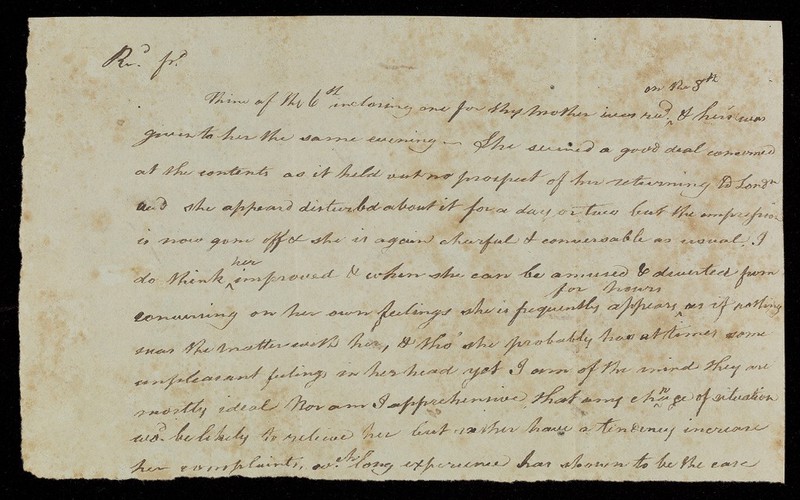 Rd. frd.
on the 8th
Thine of the 6th inclosing one for thy mother was recd. & hers was
given to her the same evening — She seemed a good deal concerned
at the contents as it held out no prospect of her returning to Londn
and she appeard disturbd about it for a day or two but the impression
is now gone off & she is again chearful & conversable as usual. I
her
do think improved & when she can be amused & diverted from
for hours
on her own feelings she is frequently appears as if nothing
was the matter with her, & tho' she probably has at times some
unpleasant feelings in her head yet I am of the mind they are
mostly ideal Nor am I apprehensive that any change of situation
wod. be likely to relieve her but rather have a tendency increase
her complaints, wch. long experience has shown to be the case